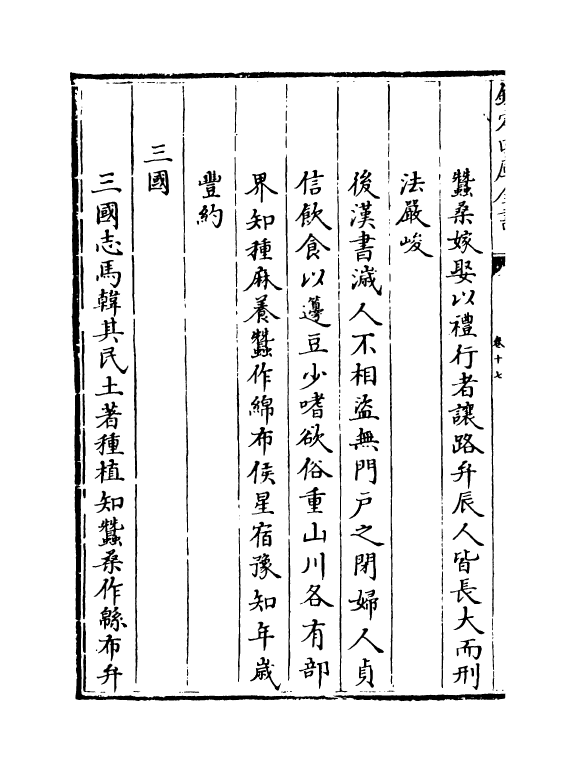 欽定四庫全書
卷十七
蠶桑嫁娶以禮行者讓路弁辰人皆長大而刑
法嚴峻
後漢書濊人不相盜無門戸之閉婦人貞
信飲食以籩豆少嗜欲俗重山川各有部
界知種麻養蠶作綿布侯星宿豫知年歲
豐約
三國
三國志馬韓其民土著種植知蠶桑作緜布弁